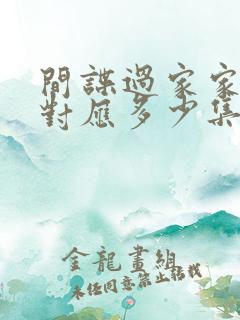 間諜過家家
對應多少集
金龍畫組
未经同意禁止转载